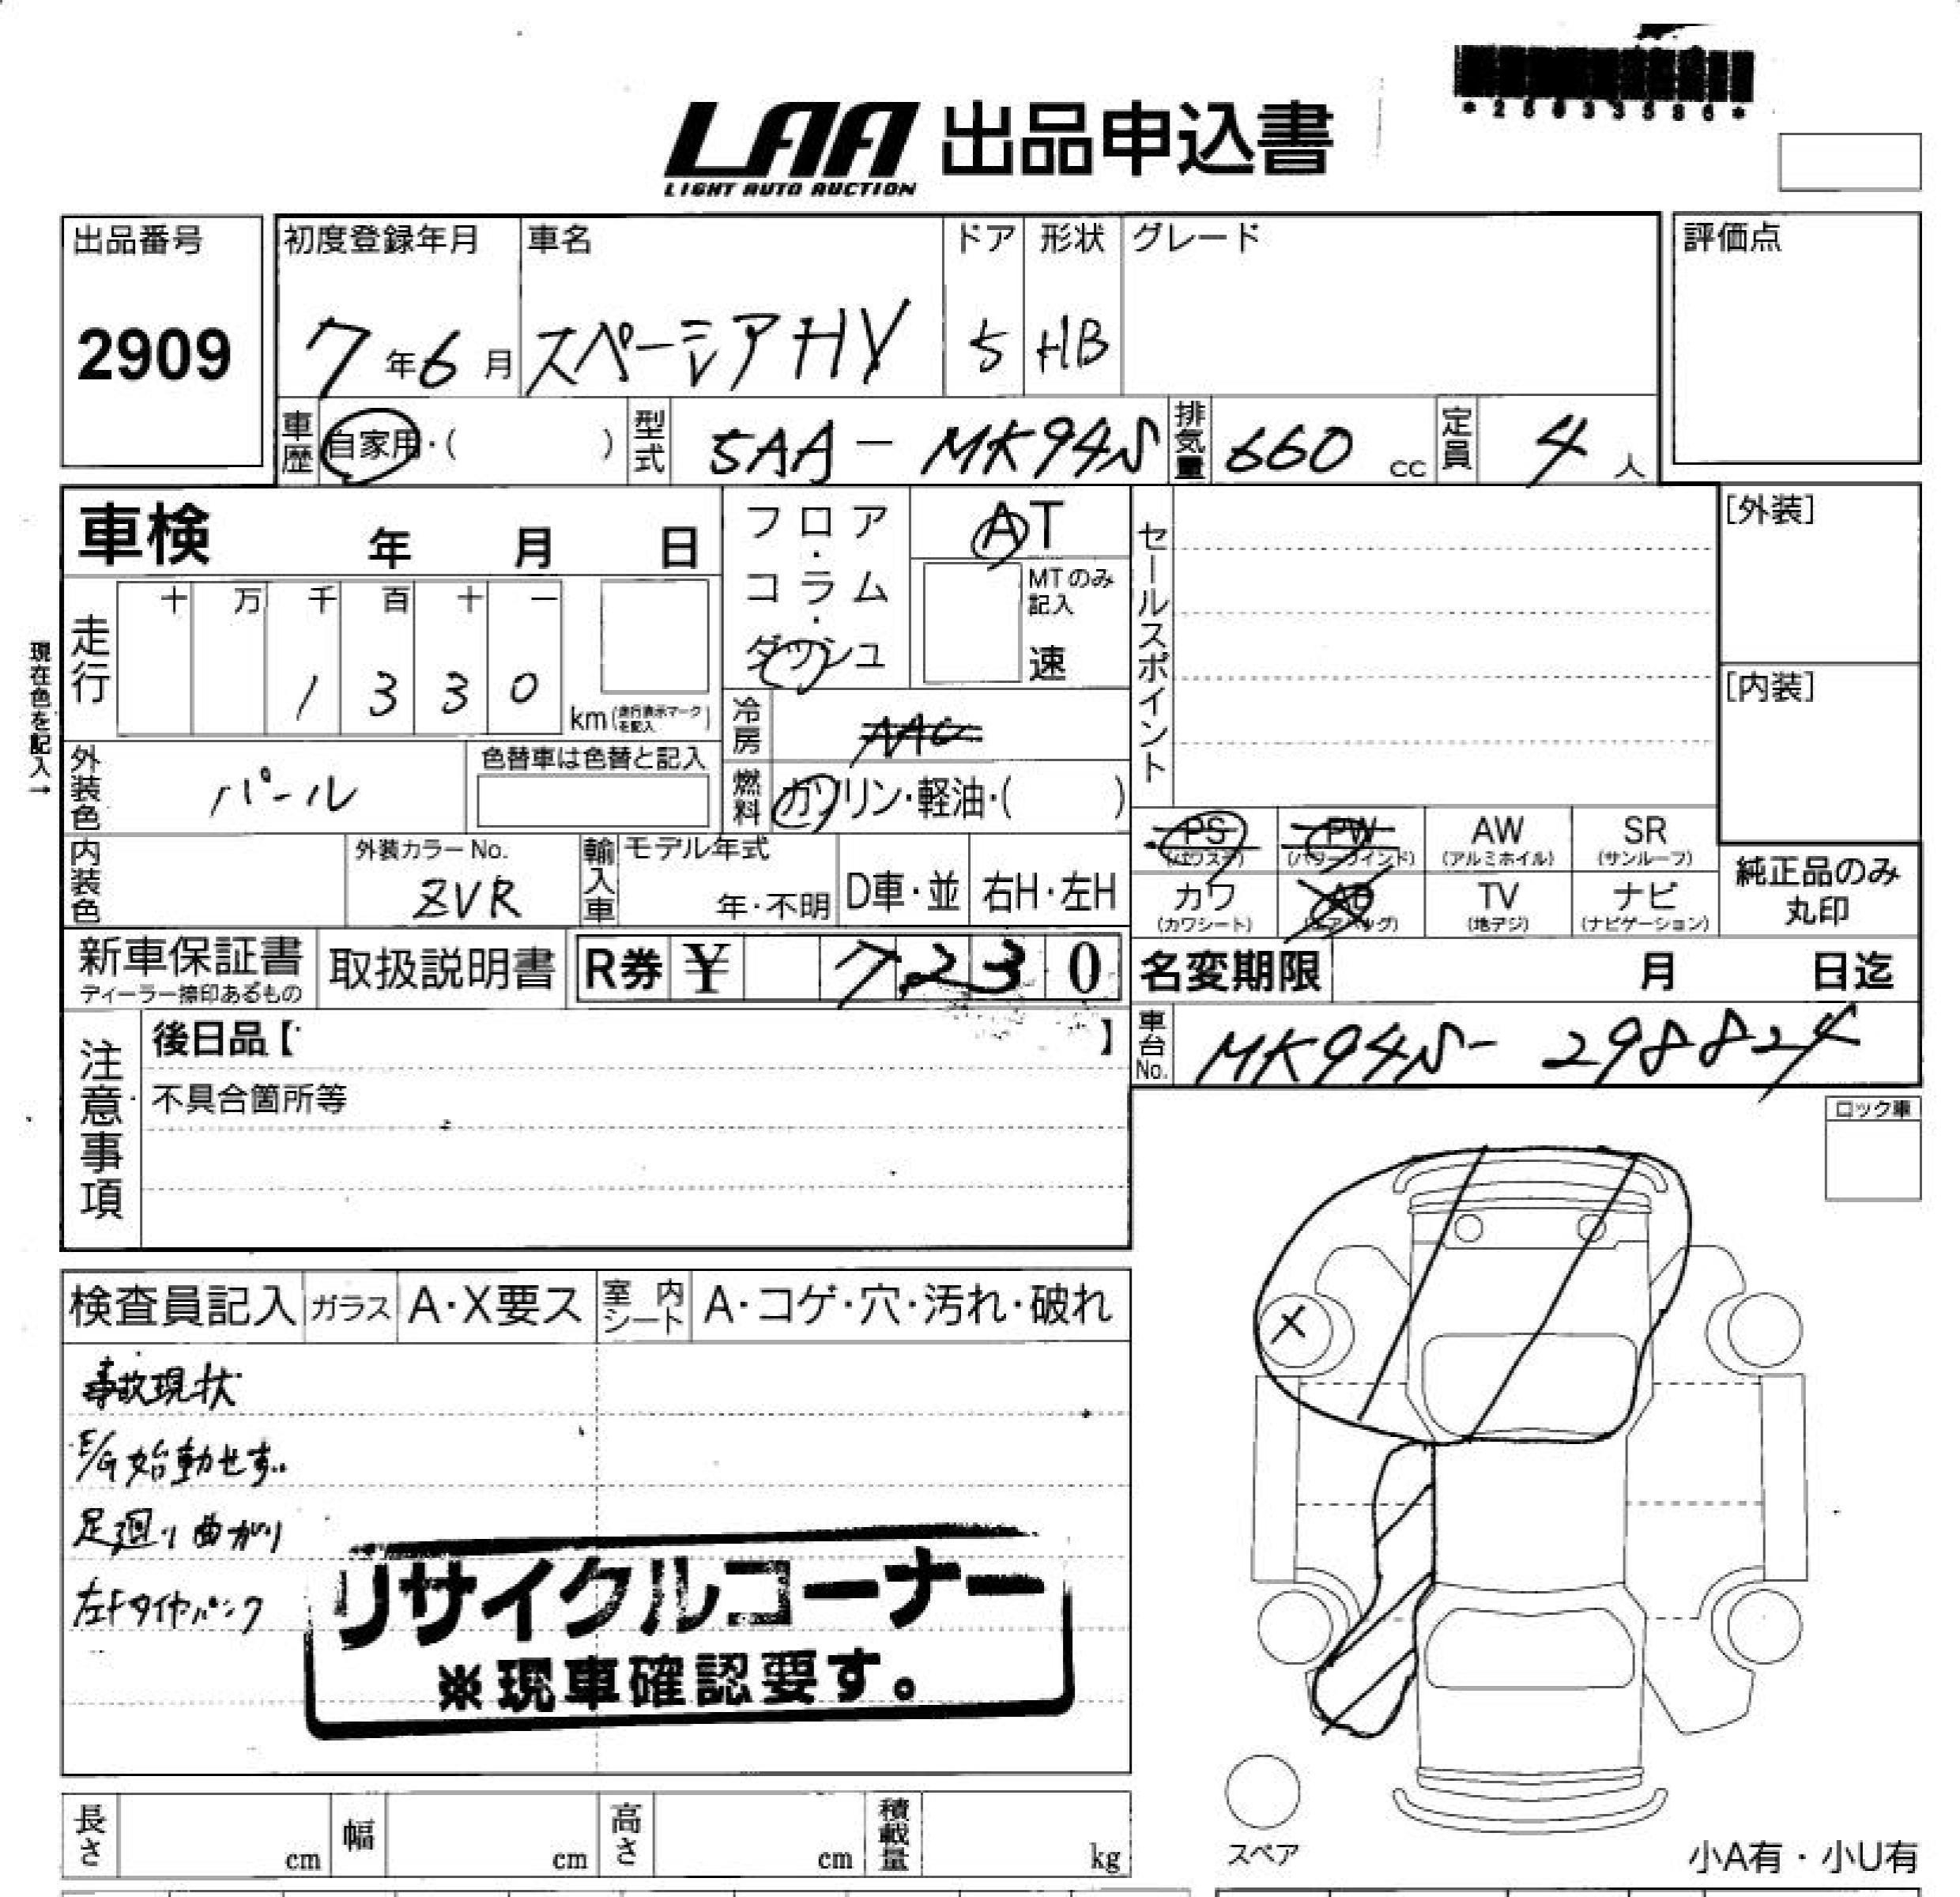 *25033586*
LAA 出品申込書
LIGHT AUTO AUCTION
出品番号
2909
初度登録年月
7年6月
車名
スペーシアHV
ドア
5
形状
HB
グレード
評価点
車歴
自家用・( )
型式
5AA-MK94S
排気量
660 cc
定員
4人
車検 年 月 日
フロア・コラム・ダッシュ
AT
MTのみ記入
速
セールスポイント
[外装]
[内装]
現在色を記入→
走行
十 万 千 百 十 一
1 3 3 0
km(走行表示マークを記入)
冷房
AAC
燃料
ガソリン・軽油・( )
外装色
パール
色替車は色替と記入
内装色
外装カラーNo.
ZVR
輸入車
モデル年式
年・不明
D車・並
右H・左H
PS
(パワステ)
PW
(パワーウインド)
AW
(アルミホイル)
SR
(サンルーフ)
カワ
(カワシート)
AB
(エアバッグ)
TV
(地デジ)
ナビ
(ナビゲーション)
純正品のみ
丸印
新車保証書
ディーラー捺印あるもの
取扱説明書
R券 ¥ 7230
名変期限 月 日迄
車台No.
MK94S-298824
注意事項
後日品【 】
不具合箇所等
ロック車
検査員記入
ガラス
A・X要ス
室内シート
A・コゲ・穴・汚れ・破れ
事故現状
E/G始動せず。
足廻り曲がり
左Fタイヤパンク
リサイクルコーナー
※現車確認要す。
X
長さ cm
幅 cm
高さ cm
積載量 kg
スペア
小A有・小U有